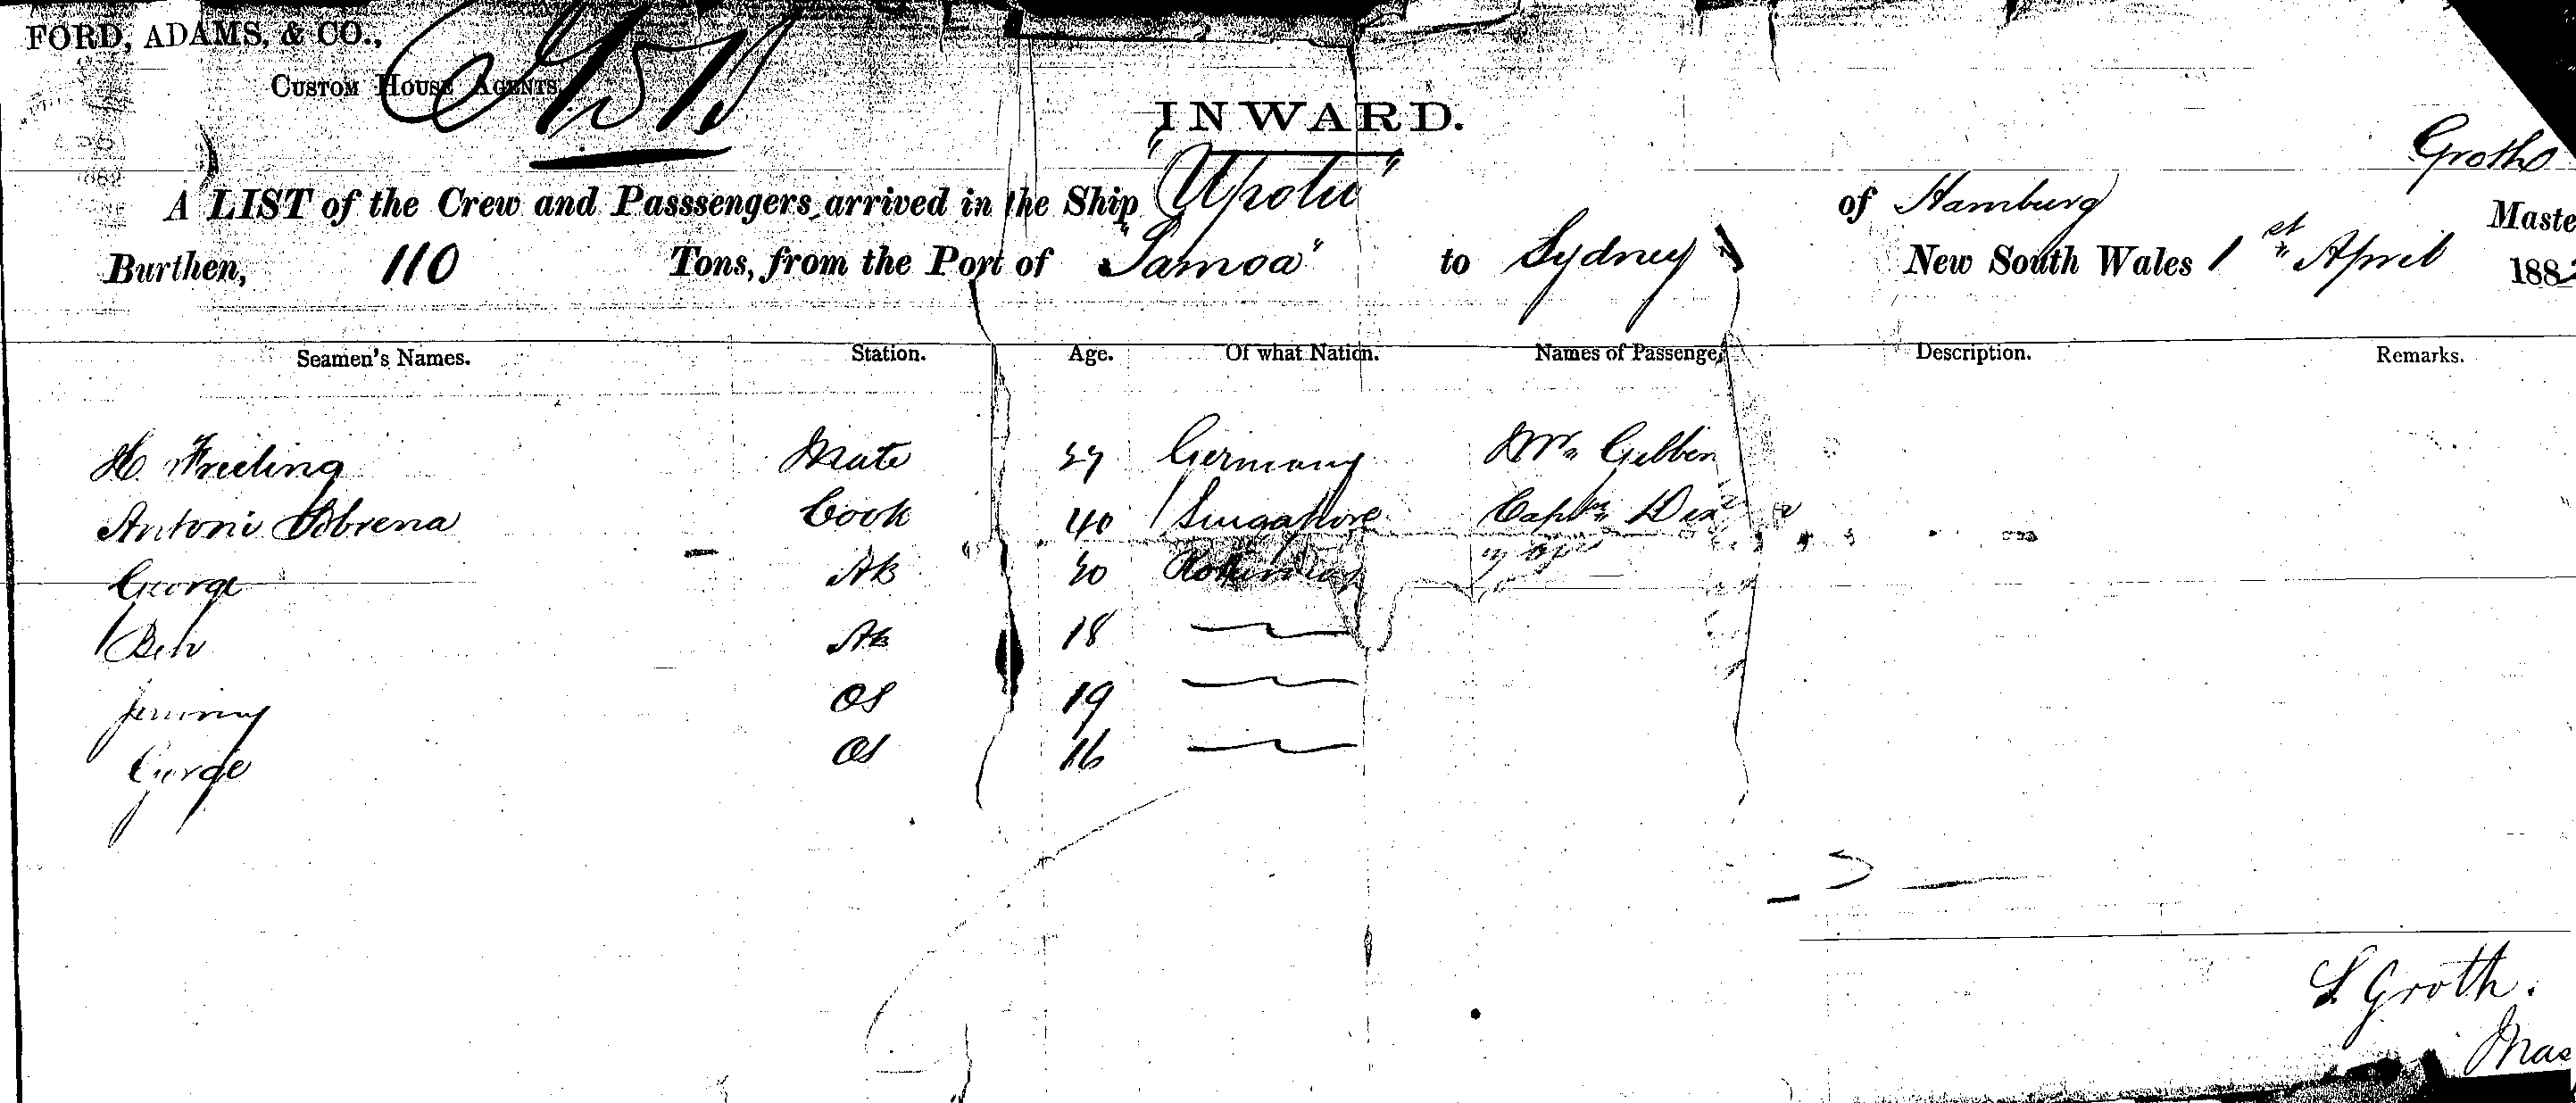 FORD, ADAMS, & CO.,
CUSTOM HOUSE AGENTS
INWARD.
Groth
A LIST of the Crew and Passsengers arrived in the Ship "Upolu" of Hamburg Maste
Burthen, 110 Tons, from the Port of "Samoa" to Sydney New South Wales 1st April 188
Seamen's Names. Station. Age. Of what Nation. Names of Passenge Description. Remarks.
H. Freeling Mate Germany Mr Gibben
Antoni Cook 40 Singapore Captn
George AB 30
Ben AB 18
Jimmy OS 19
George OS 16
L Groth.
Mas